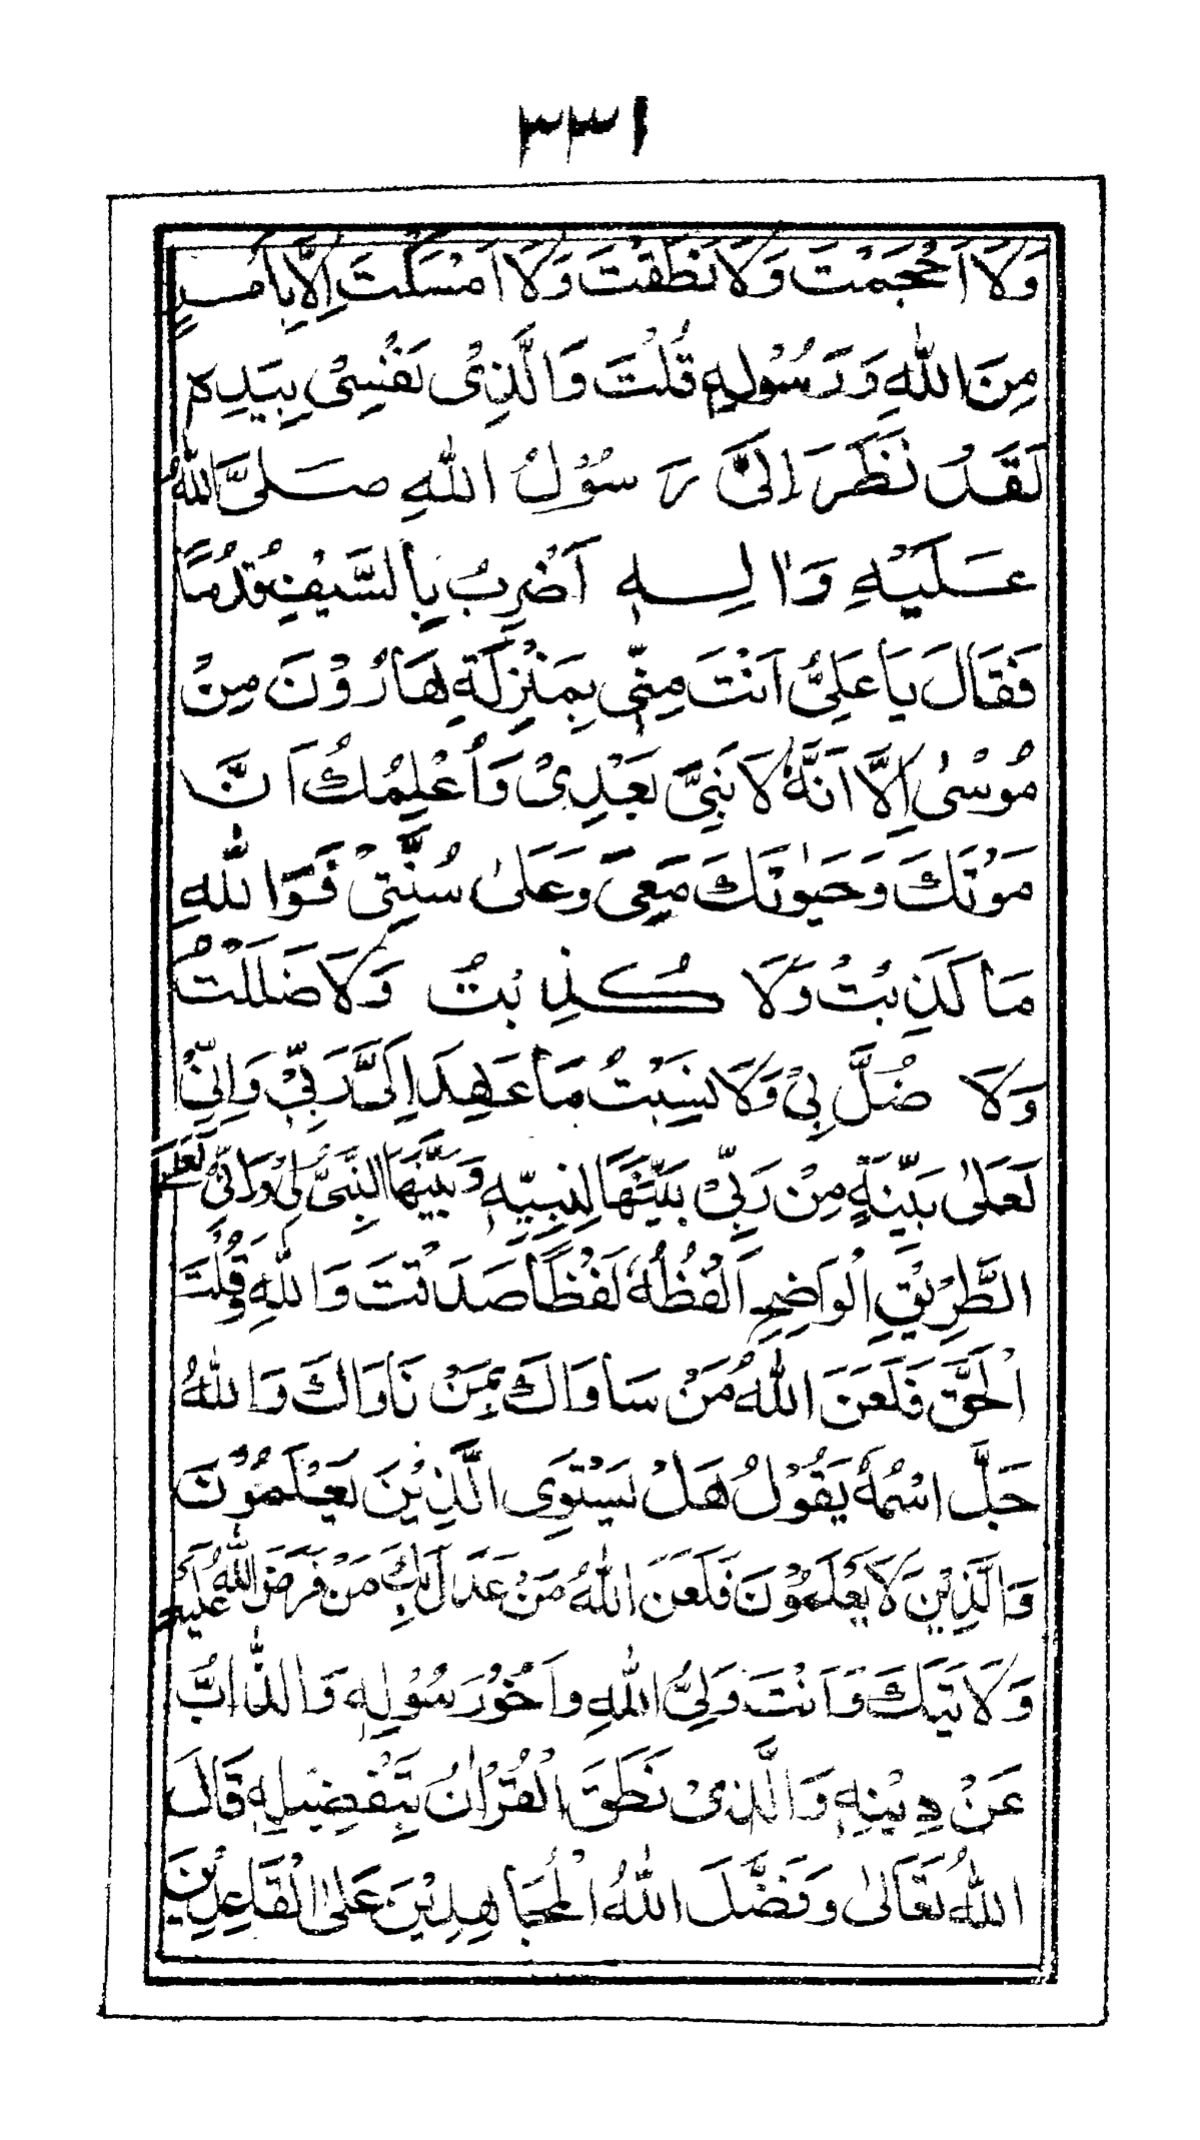 ٣٣١
وَلَا اَحْجَمْتَ وَلَا نَطَقْتَ وَلَا اَمْسَكْتَ اِلَّا بِاَمْرٍ
مِنَ اللّٰهِ وَرَسُوْلِهٖ قُلْتَ وَالَّذِیْ نَفْسِیْ بِیَدِهٖ
لَقَدْ نَظَرَ اِلَیَّ رَسُوْلُ اللّٰهِ صَلَّی اللّٰهُ
عَلَیْهِ وَاٰلِهٖ اَضْرِبُ بِالسَّیْفِ قُدْمًا
فَقَالَ یَا عَلِیُّ اَنْتَ مِنِّیْ بِمَنْزِلَةِ هَارُوْنَ مِنْ
مُوْسٰی اِلَّا اَنَّهٗ لَا نَبِیَّ بَعْدِیْ وَاُعْلِمُكَ اَنَّ
مَوْتَكَ وَحَیٰوتَكَ مَعِیَ وَعَلٰی سُنَّتِیْ فَوَاللّٰهِ
مَا كَذَبْتُ وَلَا كُذِبْتُ وَلَا ضَلَلْتُ
وَلَا ضُلَّ بِیْ وَلَا نَسِیْتُ مَا عَهِدَ اِلَیَّ رَبِّیْ وَاِنِّیْ
لَعَلٰی بَیِّنَةٍ مِنْ رَبِّیْ بَیَّنَهَا لِنَبِیِّهٖ وَبَیَّنَهَا النَّبِیُّ لِیْ وَاِنِّیْ لَعَلَی
الطَّرِیْقِ الْوَاضِحِ اَلْفُظُهٗ لَفْظًا صَدَقْتَ وَاللّٰهِ وَقُلْتَ
الْحَقَّ فَلَعَنَ اللّٰهُ مَنْ سَاوَاكَ بِمَنْ نَاوَاكَ وَاللّٰهُ
جَلَّ اسْمُهٗ یَقُوْلُ هَلْ یَسْتَوِی الَّذِیْنَ یَعْلَمُوْنَ
وَالَّذِیْنَ لَا یَعْلَمُوْنَ فَلَعَنَ اللّٰهُ مَنْ عَدَلَ بِكَ مَنْ فَرَضَ اللّٰهُ عَلَیْهِ
وَلَایَتَكَ وَاَنْتَ وَلِیُّ اللّٰهِ وَاَخُوْ رَسُوْلِهٖ وَالذَّابُّ
عَنْ دِیْنِهٖ وَالَّذِیْ نَطَقَ الْقُرْاٰنُ بِتَفْضِیْلِهٖ قَالَ
اللّٰهُ تَعَالٰی وَفَضَّلَ اللّٰهُ الْمُجَاهِدِیْنَ عَلَی الْقَاعِدِیْنَ